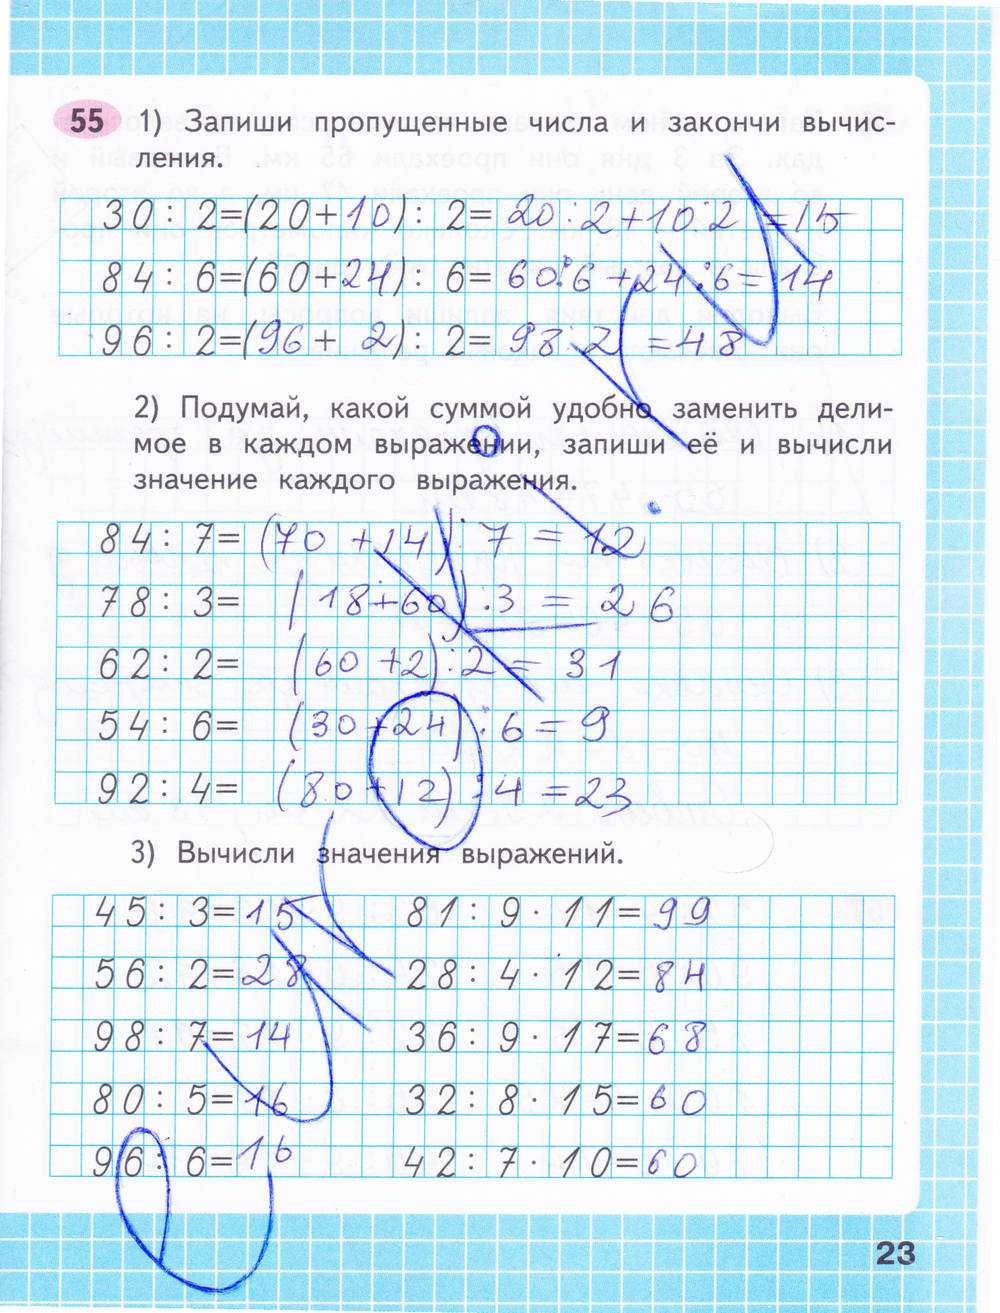 55 1) Запиши пропущенные числа и закончи вычис-
ления.
30 : 2=(20+10) : 2= 20:2+10:2=15
84 : 6=(60+24) : 6= 60:6+24:6=14
96 : 2=(96+ 2) : 2= 98:2 =48
2) Подумай, какой суммой удобно заменить дели-
мое в каждом выражении, запиши её и вычисли
значение каждого выражения.
84 : 7= (70 +14) : 7 = 12
78 : 3= (18+60) :3 = 26
62 : 2= (60 +2):2 = 31
54 : 6= (30+24) :6 = 9
92 : 4= (80+12) :4 =23
3) Вычисли значения выражений.
45 : 3=15 81 : 9 · 11=99
56 : 2=28 28 : 4 · 12=84
98 : 7=14 36 : 9 · 17=68
80 : 5=16 32 : 8 · 15=60
96 : 6=16 42 : 7 · 10=60
23